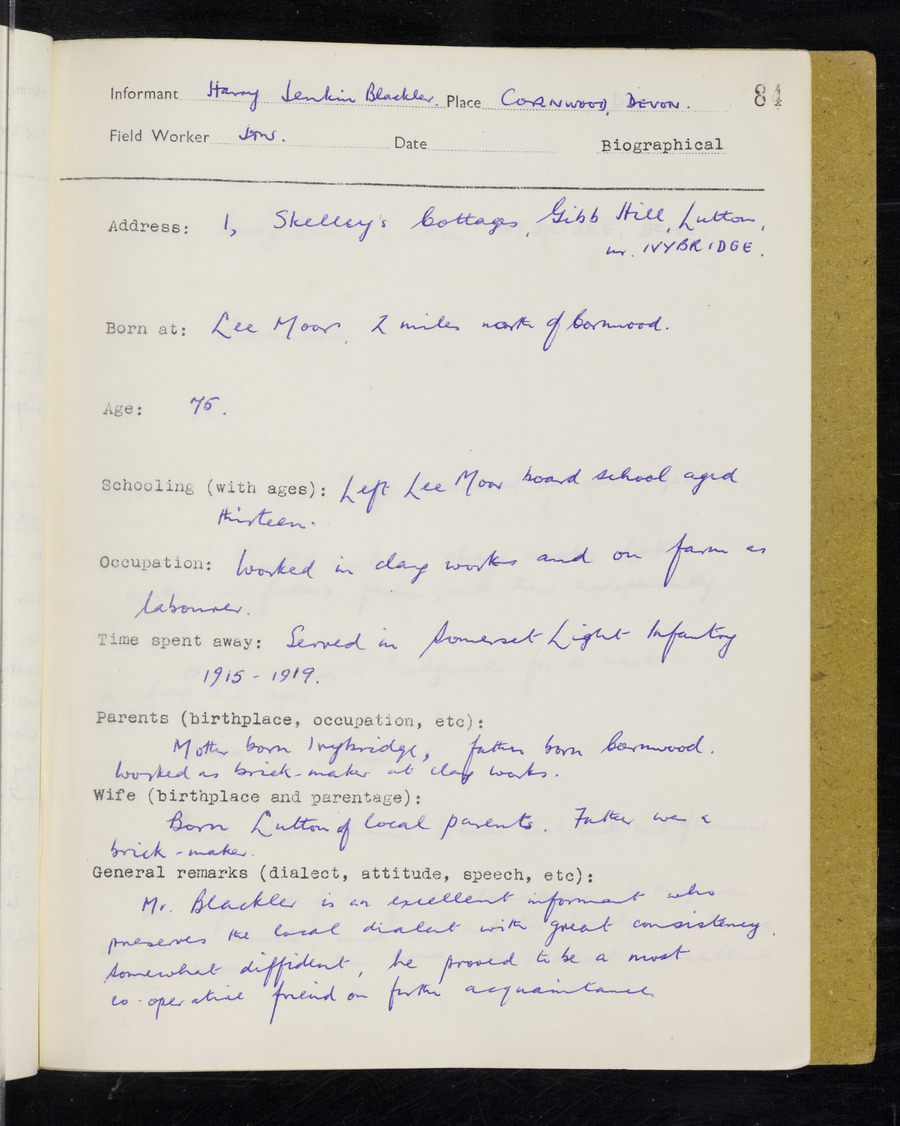 Informant Harry Jenkin Blackler. Place CORNWOOD, DEVON. 84
Field Worker Date Biographical
Address: 1, Skelley's Cottages, Gibb Hill, Lutton,
nr. IVYBRIDGE.
Born at: Lee Moor, 2 miles north of Cornwood.
Age: 75.
Schooling (with ages): Left Lee Moor board school aged
thirteen.
Occupation: Worked in clay works and on farm as
labourer.
Time spent away: Served in Somerset Light Infantry
1915 - 1919.
Parents (birthplace, occupation, etc):
Mother born Ivybridge, father born Cornwood.
Worked as brick-maker at clay works.
Wife (birthplace and parentage):
Born Lutton of local parents. Father was a
brick-maker.
General remarks (dialect, attitude, speech, etc):
Mr. Blackler is an excellent informant who
preserves the local dialect with great consistency.
Somewhat diffident, he proved to be a most
co-operative friend on further acquaintance.